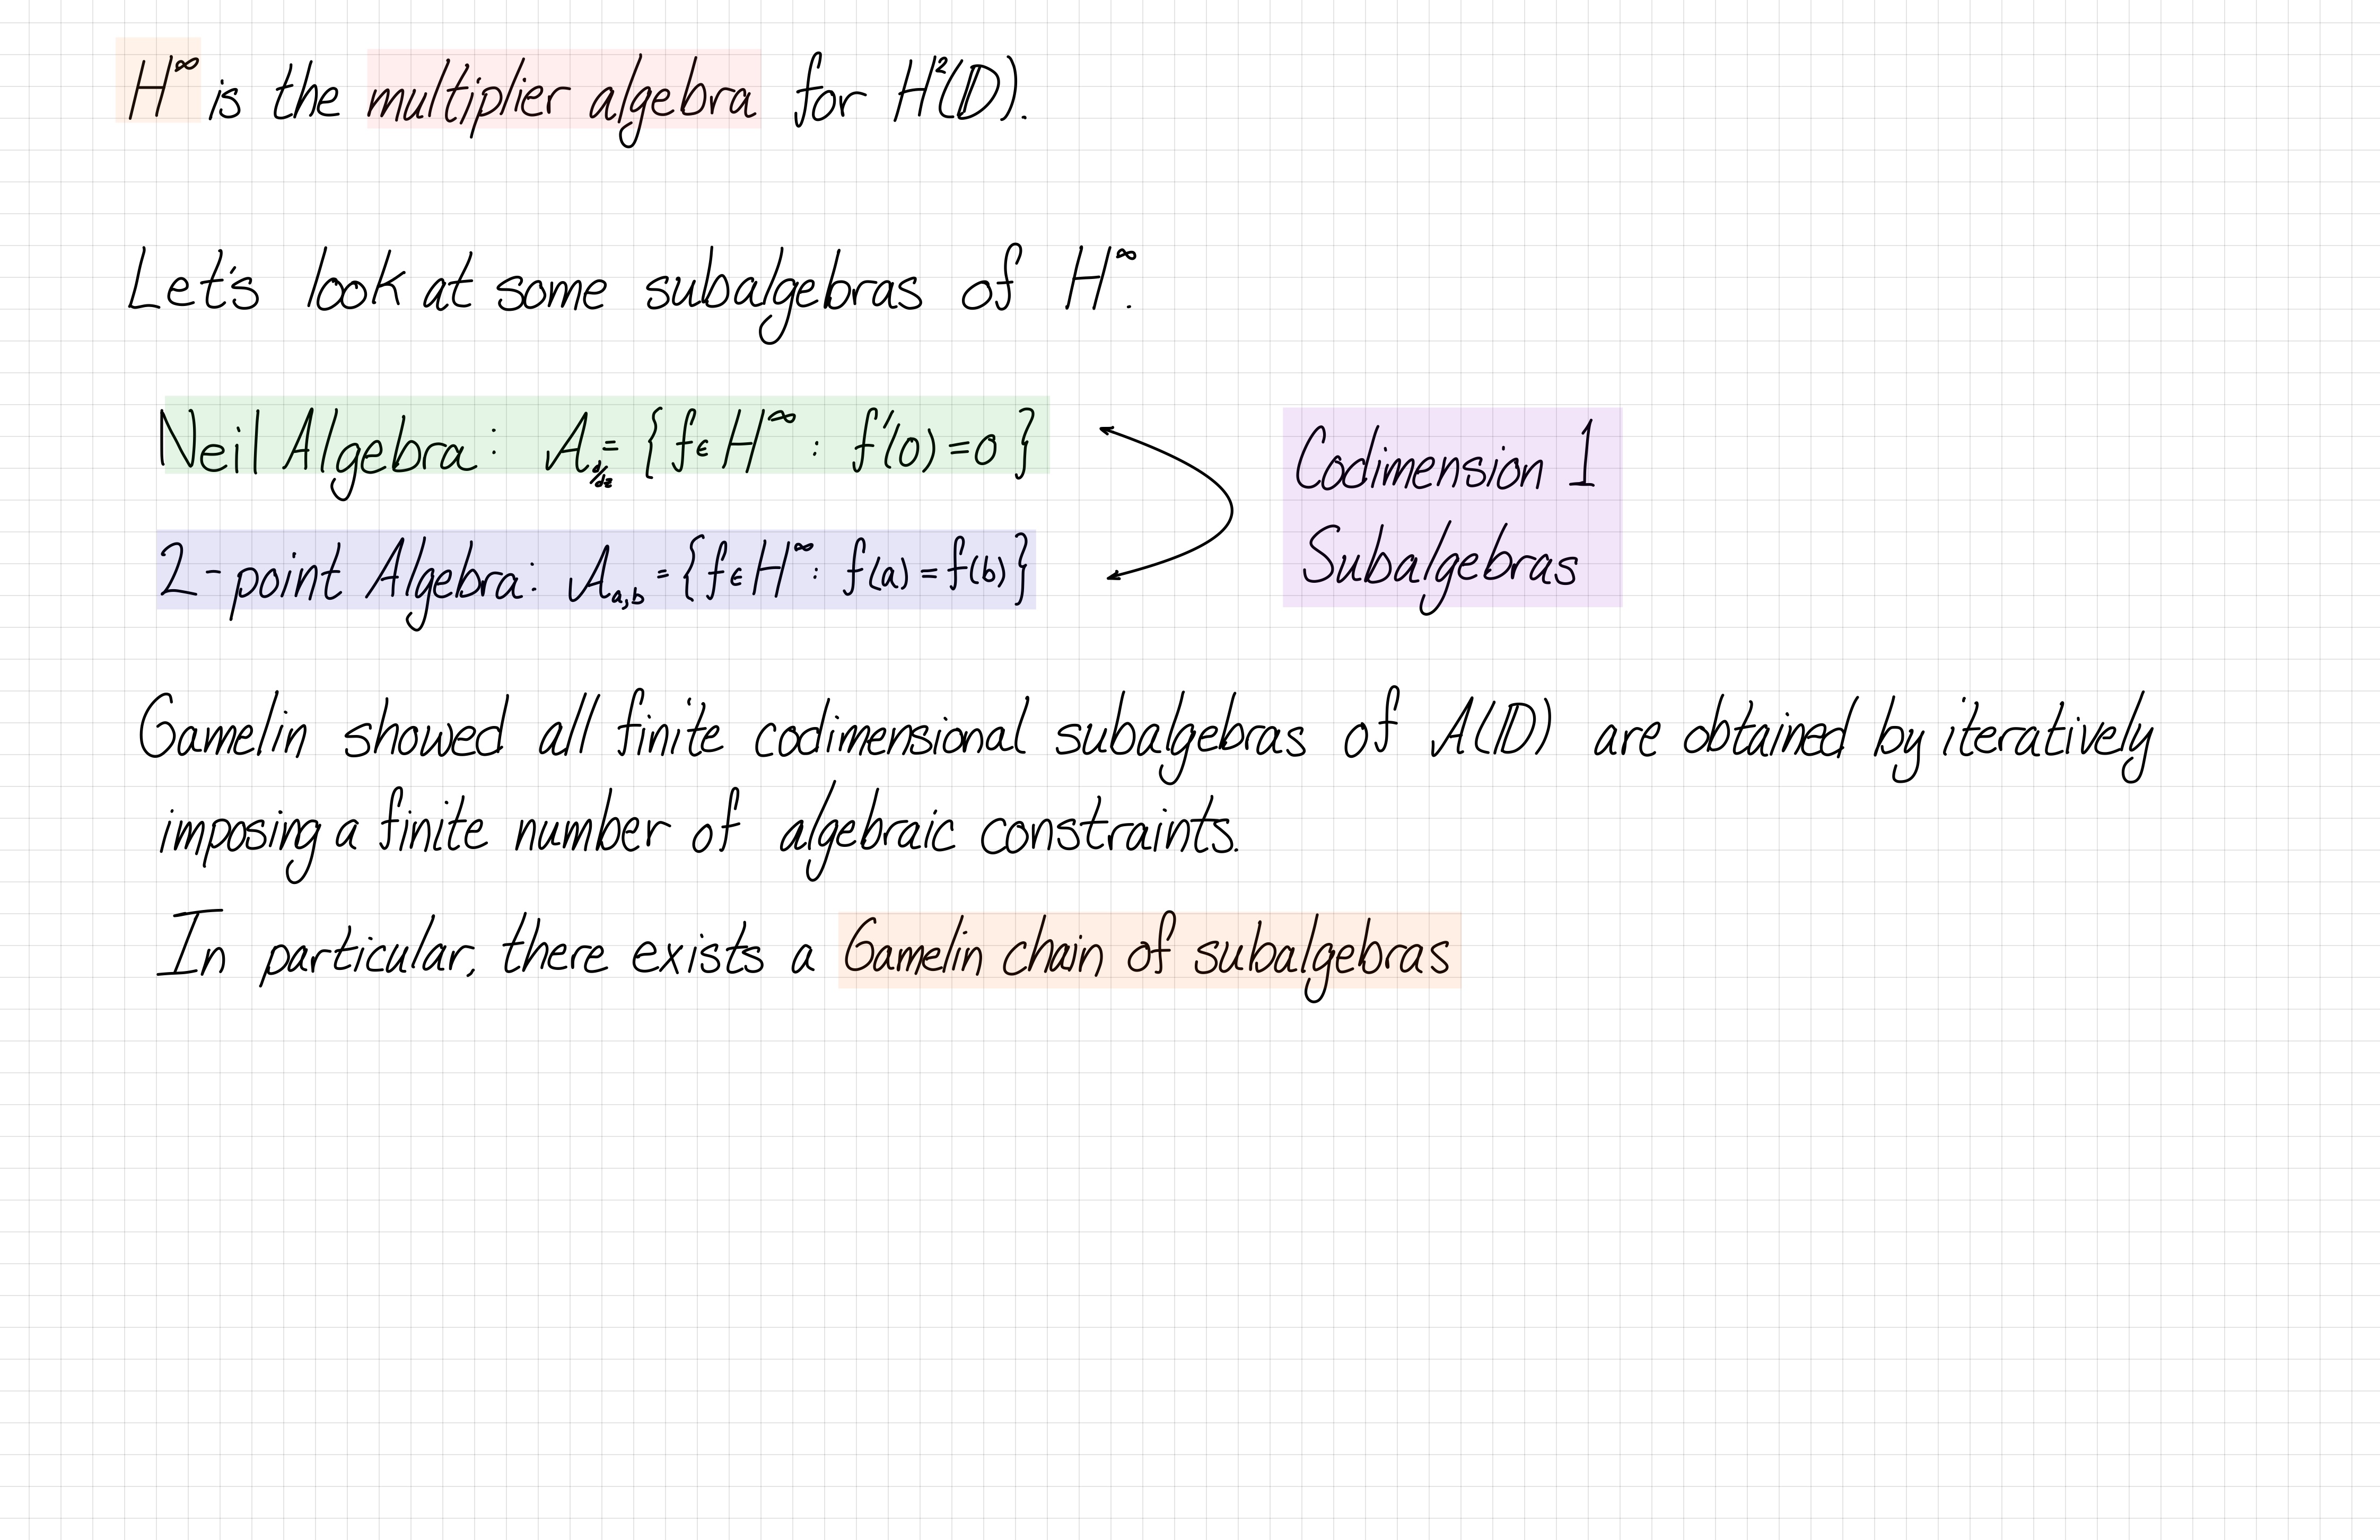 H^∞ is the multiplier algebra for H²(𝔻).
Let's look at some subalgebras of H^∞.
Neil Algebra: A_{d/dz} = {f ∈ H^∞ : f'(0) = 0}
2-point Algebra: A_{a,b} = {f ∈ H^∞ : f(a) = f(b)}
Codimension 1
Subalgebras
Gamelin showed all finite codimensional subalgebras of A(𝔻) are obtained by iteratively
imposing a finite number of algebraic constraints.
In particular, there exists a Gamelin chain of subalgebras